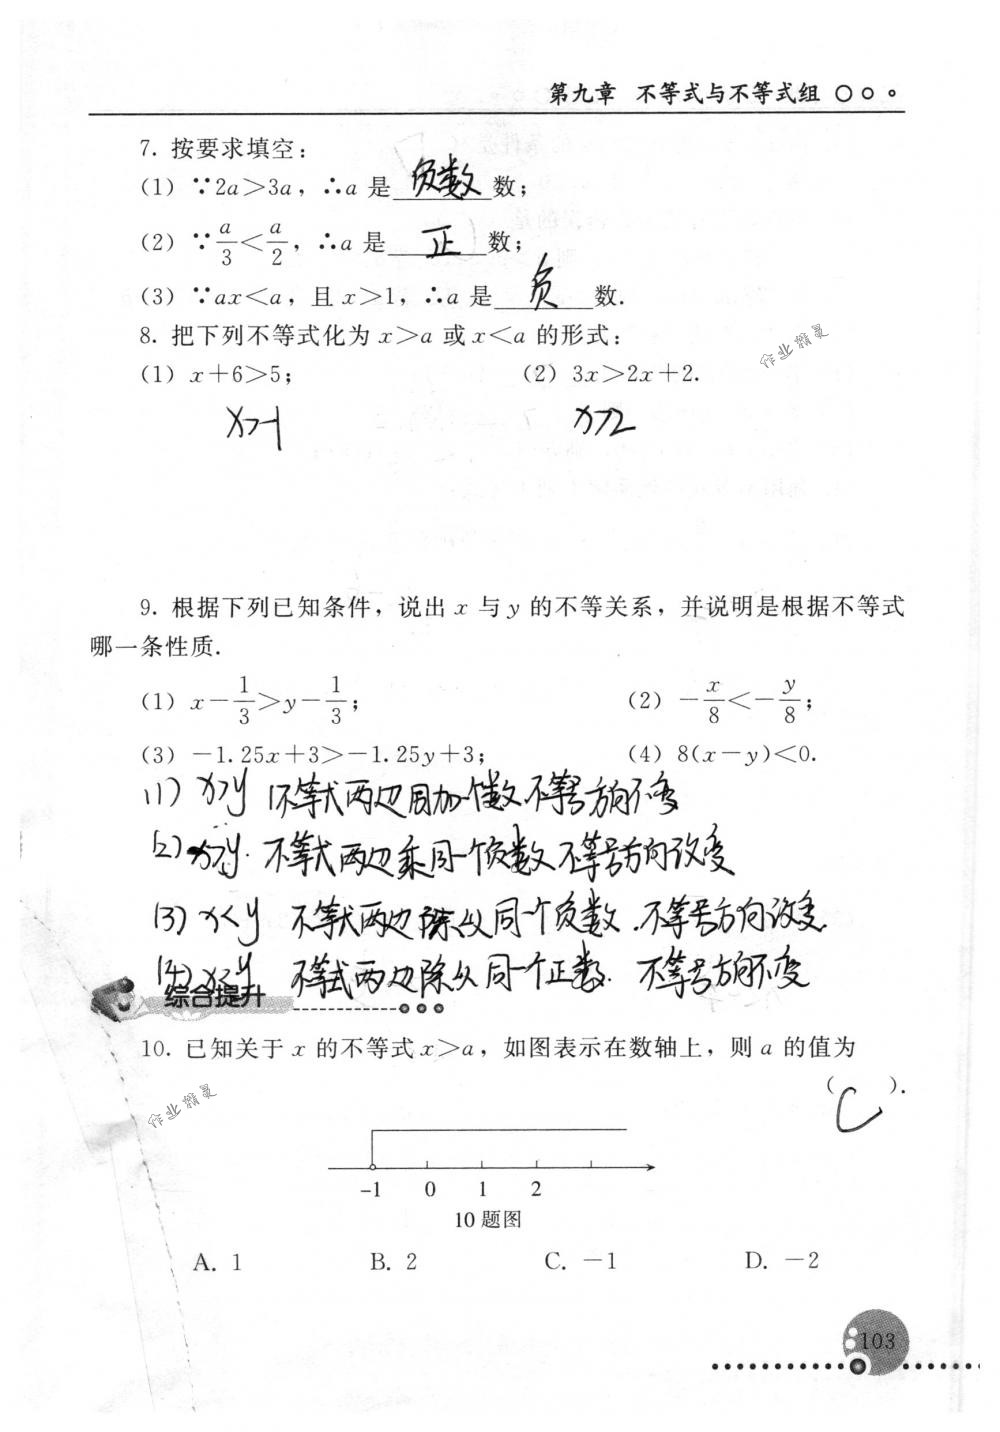 第九章 不等式与不等式组
7. 按要求填空：
(1) ∵2a＞3a，∴a 是 负数 数；
(2) ∵a/3＜a/2，∴a 是 正 数；
(3) ∵ax＜a，且 x＞1，∴a 是 负 数.
8. 把下列不等式化为 x＞a 或 x＜a 的形式：
作业精灵
(1) x＋6＞5； (2) 3x＞2x＋2.
x＞-1 x＞2
9. 根据下列已知条件，说出 x 与 y 的不等关系，并说明是根据不等式
哪一条性质.
(1) x－1/3＞y－1/3； (2) －x/8＜－y/8；
(3) －1.25x＋3＞－1.25y＋3； (4) 8(x－y)＜0.
(1) x＞y 不等式两边同加一个数不等号方向不变
(2) x＞y. 不等式两边乘同一个负数不等号方向改变
(3) x＜y 不等式两边除以同一个负数.不等号方向改变.
(4) x＞y 不等式两边除以同一个正数. 不等号方向不变
综合提升
10. 已知关于 x 的不等式 x＞a，如图表示在数轴上，则 a 的值为
( C ).
作业精灵
-1 0 1 2
10 题图
A. 1 B. 2 C. －1 D. －2
103